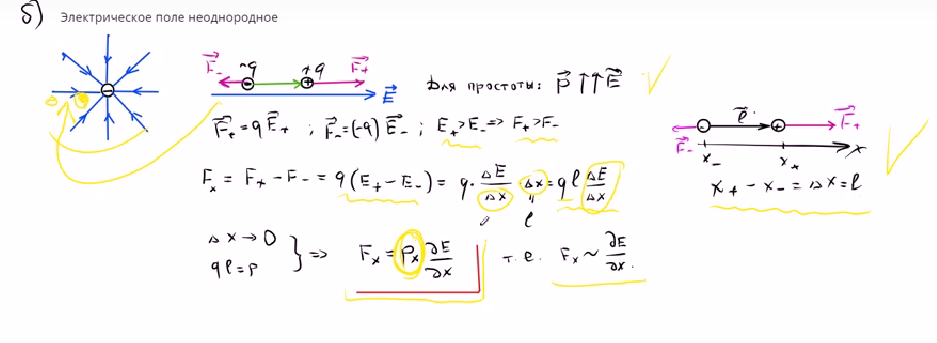 б) Электрическое поле неоднородное
F⃗₋ -q +q F⃗₊
E⃗
Для простоты: p⃗ ↑↑ E⃗
F⃗₊ = qE⃗₊ ; F⃗₋ = (-q) E⃗₋ ; E₊ > E₋ => F₊ > F₋
Fₓ = F₊ - F₋ = q(E₊ - E₋) = q · ΔE/Δx · Δx = ql ΔE/Δx
l
Δx → 0
ql = p
} => Fₓ = pₓ ∂E/∂x т.е. Fₓ ~ ∂E/∂x.
l⃗ F⃗₊
F⃗₋ x₋ x₊ x
x₊ - x₋ = Δx = l